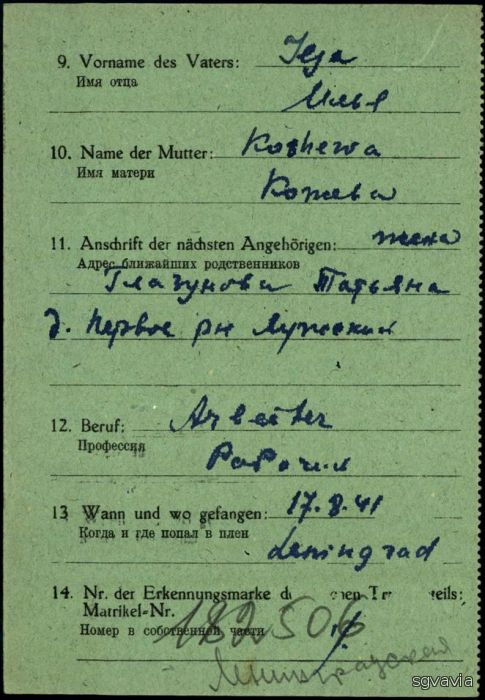 9. Vorname des Vaters: Ilja
Имя отца
Илья
10. Name der Mutter: Koshewa
Имя матери
Кожева
11. Anschrift der nächsten Angehörigen: жена
Адрес ближайших родственников
Глазунова Татьяна
д. Первое рн Лужский
12. Beruf: Arbeiter
Профессия
Рабочий
13 Wann und wo gefangen: 17.8.41
Когда и где попал в плен
Leningrad
14. Nr. der Erkennungsmarke teils:
Matrikel-Nr. 182506
Номер в собственной части
Ленинградская
sgvavia